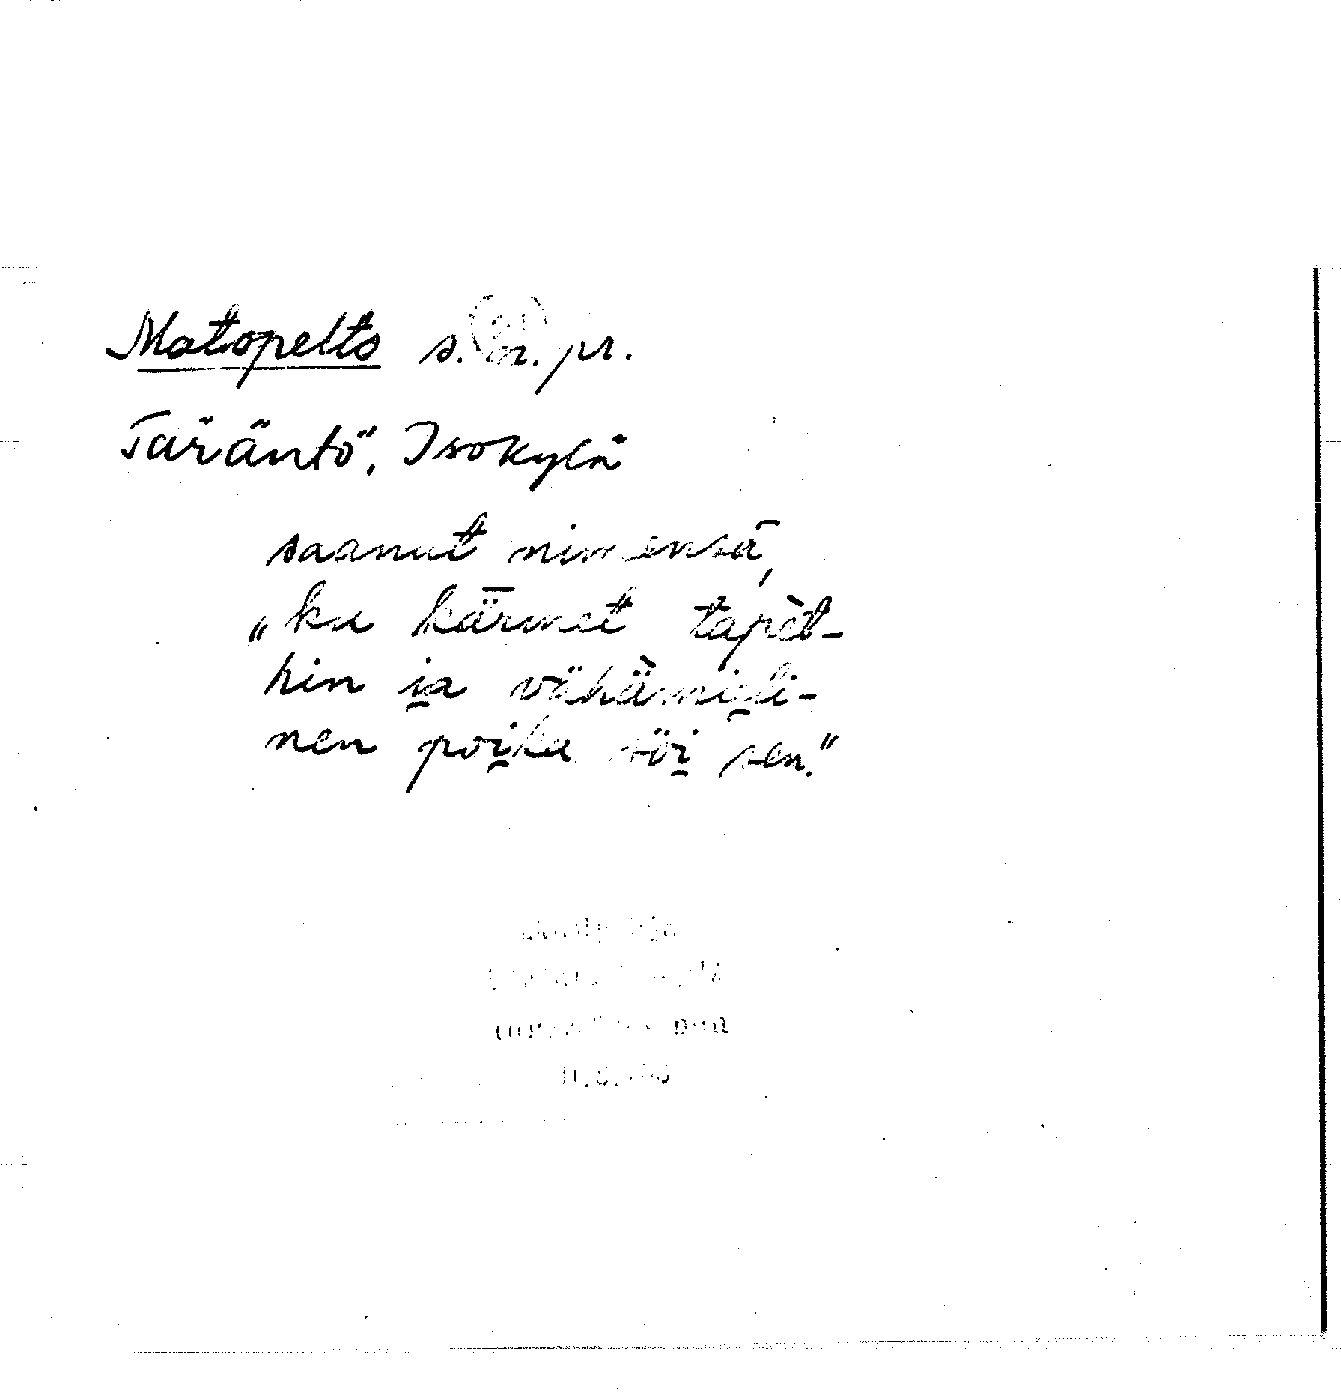 Matopelto s. n. pr.
Täräntö, Isokylä
saanut nimensä,
„ku kärmet tapèt-
hin ja vähämieli-
nen poika söi sen."